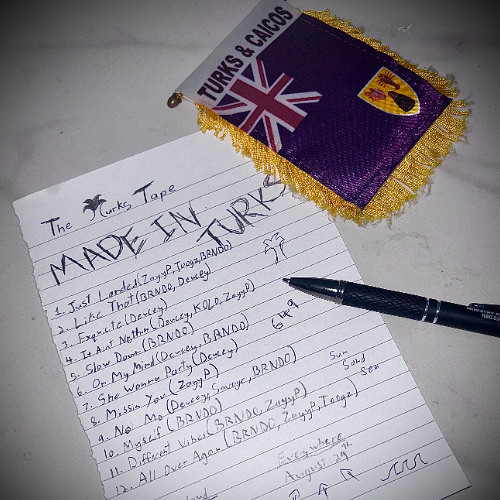 TURKS & CAICOS
The Turks Tape
MADE IN
TURKS
1. Just Landed (ZayyP, Inogz, BRNDO)
2. Like That (BRNDO, Dewey)
3. Exqucite (Dewey)
4. It Aint Nothin (Dewey, KOLO, ZayyP)
5. Slow Down (BRNDO)
6. On My Mind (Dewey, BRNDO)
7. She Wanna Party (Dewey)
8. Missin You (ZayyP)
9. No Mo (Dewey, Savage, BRNDO)
10. Myself (BRNDO)
11. Different Vibes (BRNDO, ZayyP)
12. All Over Again (BRNDO, ZayyP, Inogz)
Sun
Sand
Sea
Everywhere
August 29th